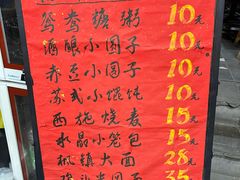 鸳鸯糖粥 10元
酒酿小圆子 10元
养豆小圆子 10元
苏式小馄饨 10元
西施烧麦 15元
水晶小笼包 15元
枫镇大面 28元
圆子 35